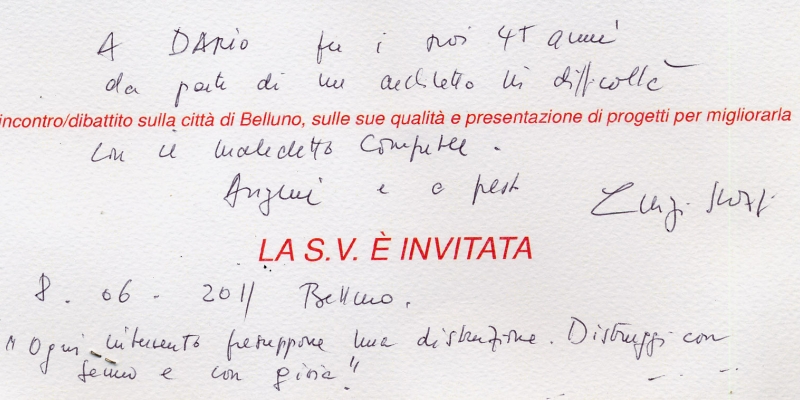 A DARIO per i suoi 45 anni
da parte di un architetto in difficoltà
incontro/dibattito sulla città di Belluno, sulle sue qualità e presentazione di progetti per migliorarla
con il maledetto Computer.
Auguri e a presto Luigi
LA S.V. È INVITATA
8. 06 - 2011 Belluno.
"Ogni intervento presuppone una distruzione. Distruggi con
senno e con gioia."